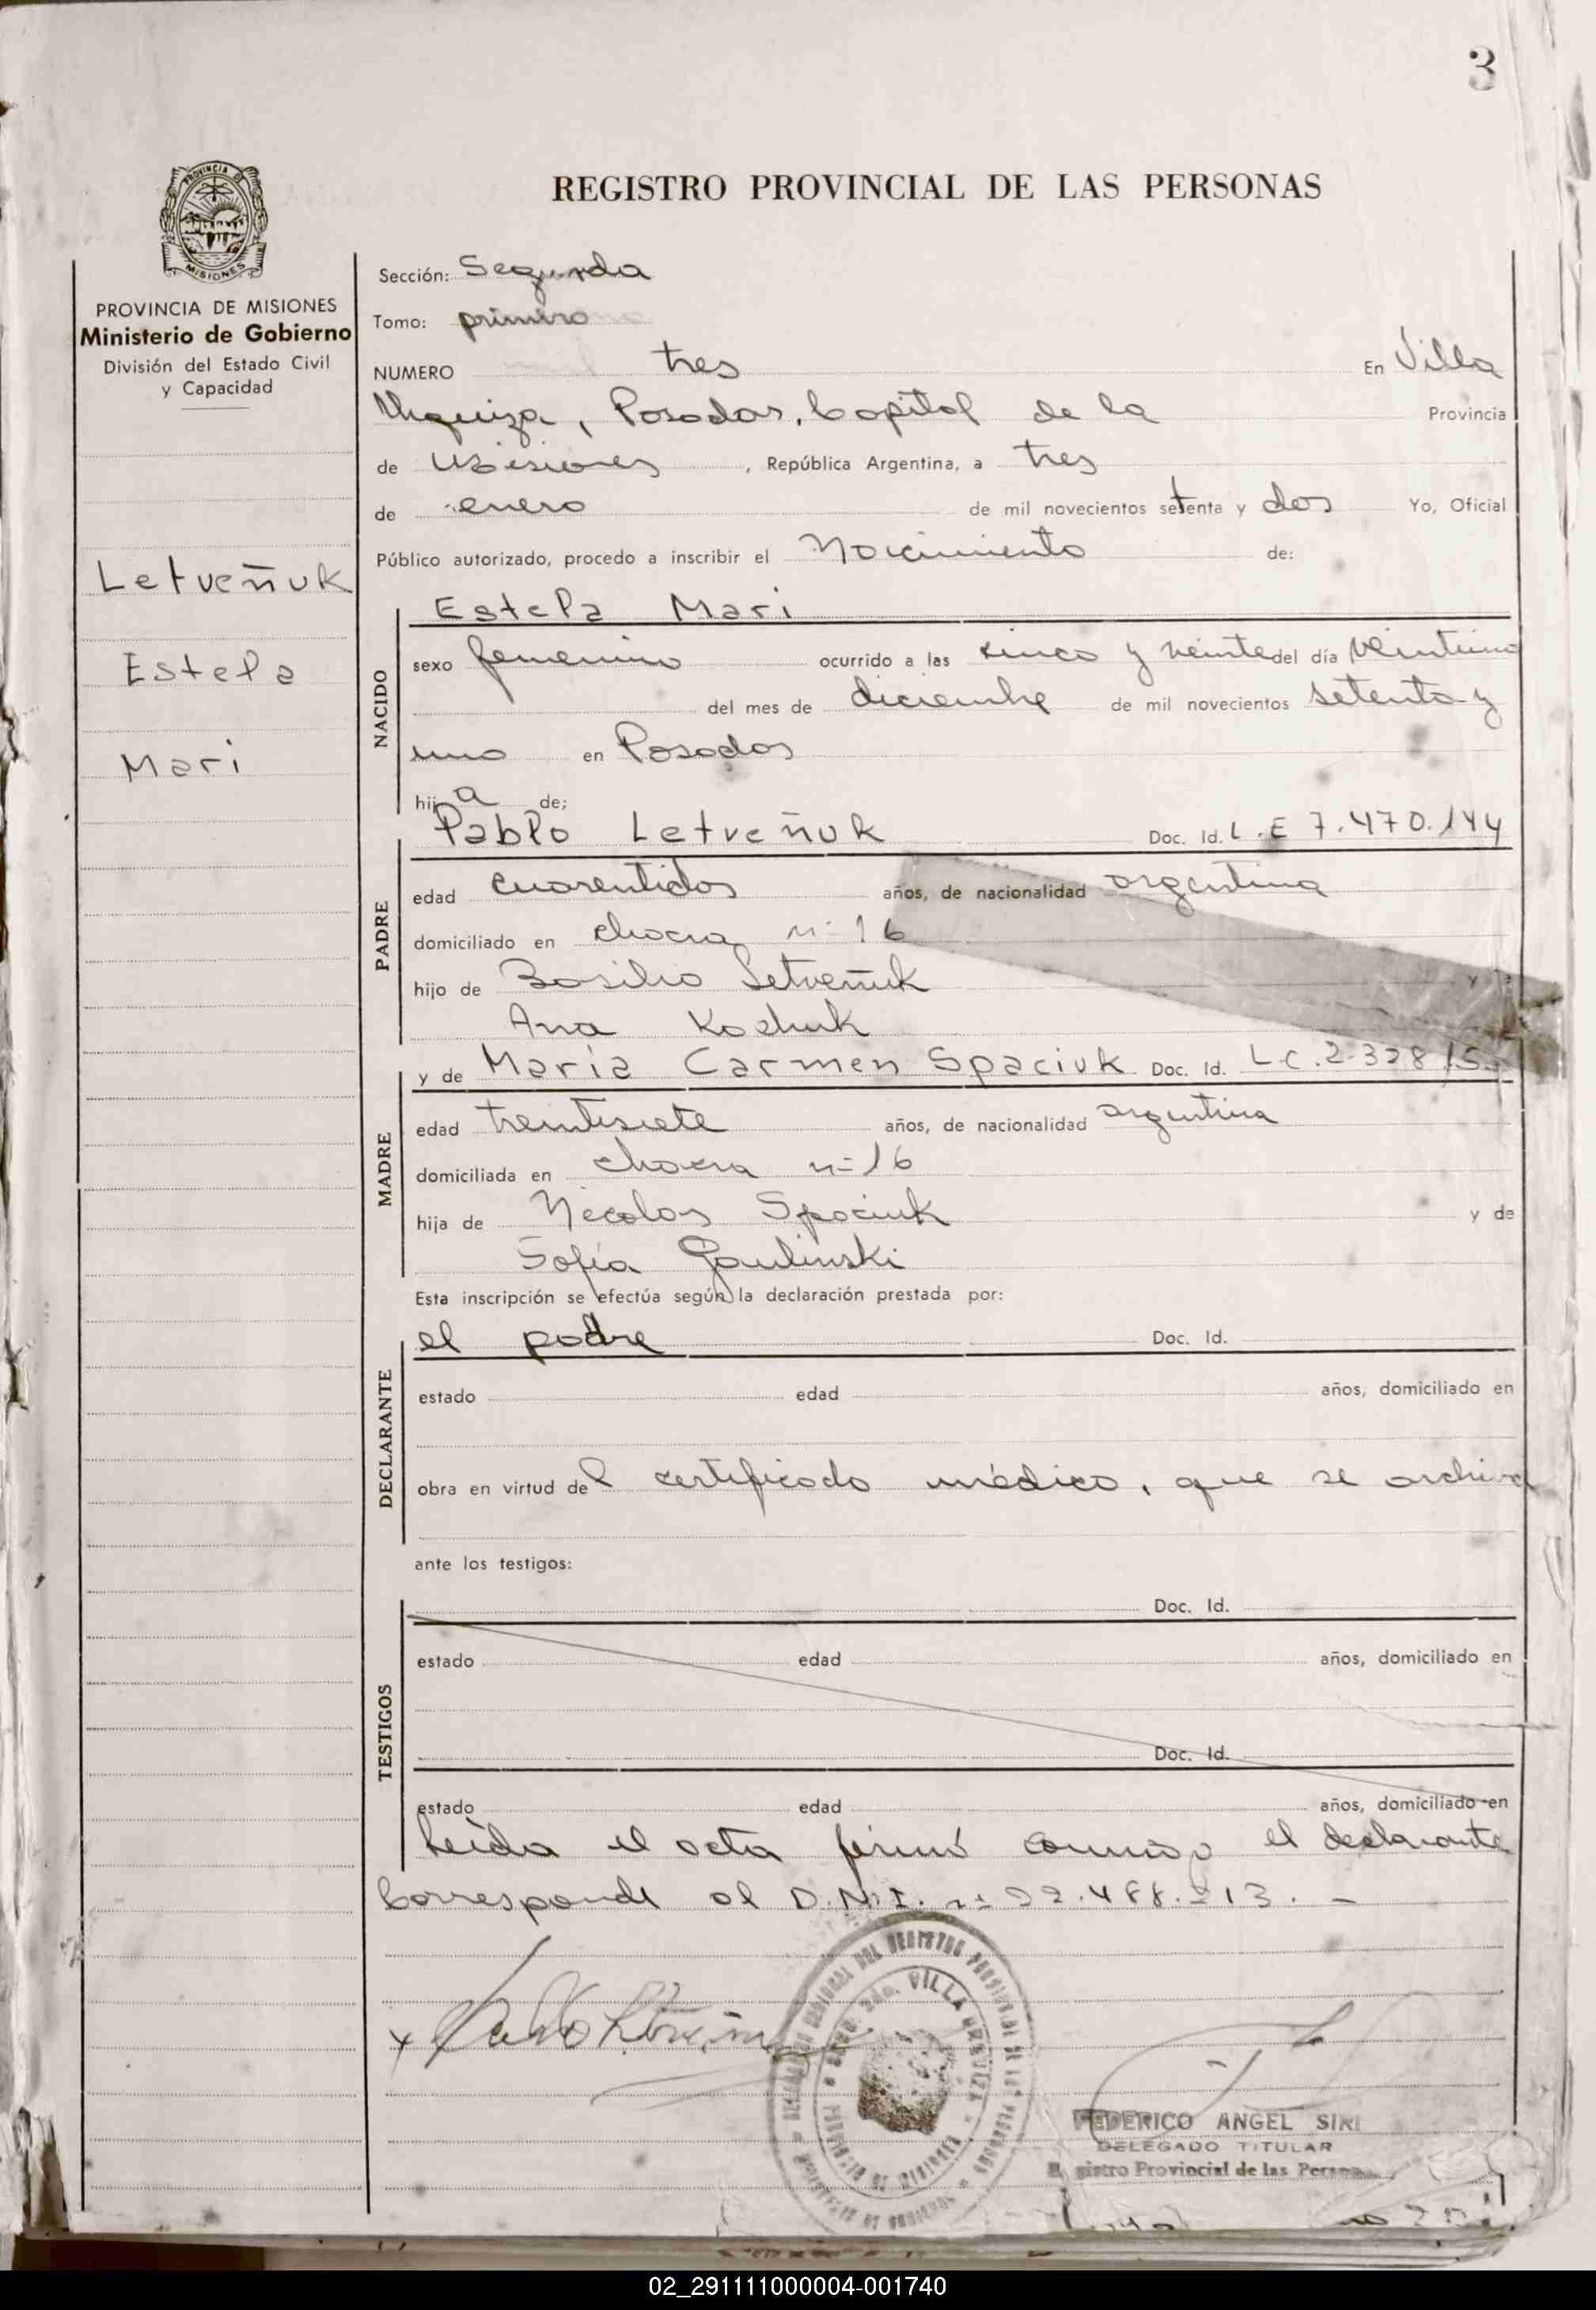 3
REGISTRO PROVINCIAL DE LAS PERSONAS
PROVINCIA DE MISIONES
Ministerio de Gobierno
División del Estado Civil
y Capacidad
Letveñuk
Estela
Mari
Sección: Segunda
Tomo: primero
NUMERO tres En Villa
Urquiza, Posadas, Capital de la Provincia
de Misiones, República Argentina, a tres
de enero de mil novecientos setenta y dos Yo, Oficial
Público autorizado, procedo a inscribir el Nacimiento de:
NACIDO
Estela Mari
sexo femenino ocurrido a las cinco y veinte del día veintiuno
del mes de diciembre de mil novecientos setenta y
uno en Posadas
hija de;
PADRE
Pablo Letveñuk Doc. Id. L.E 7.470.144
edad cuarentidos años, de nacionalidad argentina
domiciliado en chacra nº 16
hijo de Basilio Letveñuk y de
Ana
y de María Carmen Spaciuk Doc. Id. L.C. 2.328
MADRE
edad treintisiete años, de nacionalidad argentina
domiciliada en chacra nº 16
hija de Nicolas Spaciuk y de
Sofía Gaulinski
Esta inscripción se efectúa según la declaración prestada por:
DECLARANTE
el padre Doc. Id.
estado edad años, domiciliado en
obra en virtud del certificado médico, que se archiva
ante los testigos:
TESTIGOS
Doc. Id.
estado edad años, domiciliado en
Doc. Id.
estado edad años, domiciliado en
Leída el acta firmó conmigo el declarante
Corresponde al D.N.I. nº
VILLA URQUIZA
FEDERICO ANGEL SIRI
DELEGADO TITULAR
Registro Provincial de las Personas
02_291111000004-001740